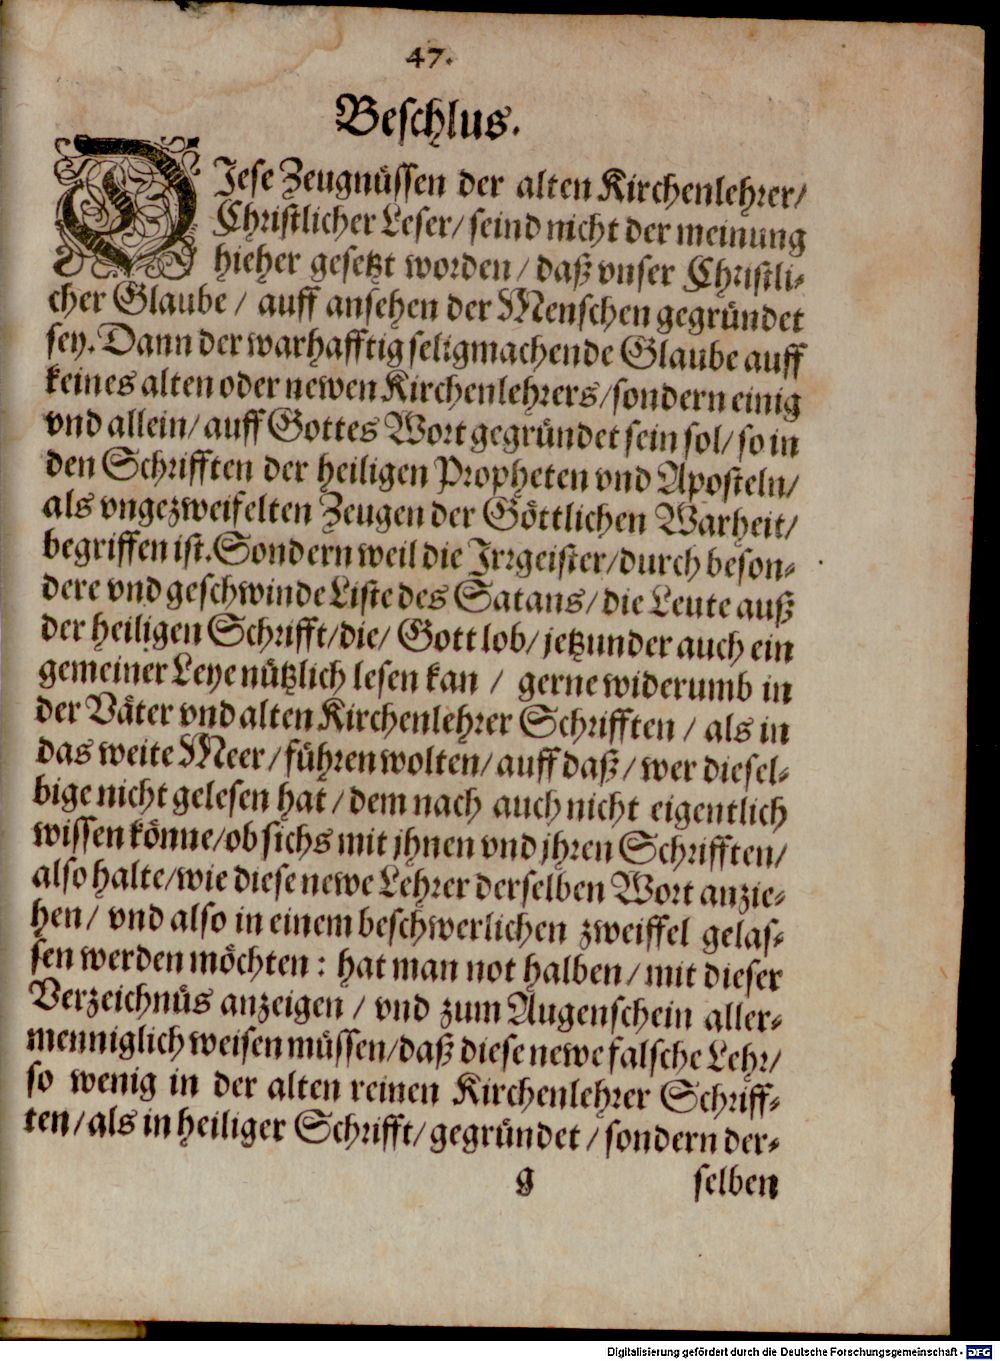 47.
Beschlus.
DJese Zeugnüssen der alten Kirchenlehrer/
Christlicher Leser/ seind nicht der meinung
hieher gesetzt worden/ daß vnser Christli-
cher Glaube/ auff ansehen der Menschen gegründet
sey. Dann der warhafftig seligmachende Glaube auff
keines alten oder newen Kirchenlehrers/ sondern einig
vnd allein/ auff Gottes Wort gegründet sein sol/ so in
den Schrifften der heiligen Propheten vnd Aposteln/
als vngezweifelten Zeugen der Göttlichen Warheit/
begriffen ist. Sondern weil die Jrrgeister/ durch beson-
dere vnd geschwinde Liste des Satans/ die Leute auß
der heiligen Schrifft/ die/ Gott lob/ jetzunder auch ein
gemeiner Leye nützlich lesen kan/ gerne widerumb in
der Väter vnd alten Kirchenlehrer Schrifften/ als in
das weite Meer/ führen wolten/ auff daß/ wer diesel-
bige nicht gelesen hat/ dem nach auch nicht eigentlich
wissen könne/ ob sichs mit jhnen vnd jhren Schrifften/
also halte/ wie diese newe Lehrer derselben Wort anzie-
hen/ vnd also in einem beschwerlichen zweiffel gelas-
sen werden möchten: hat man not halben/ mit dieser
Verzeichnüs anzeigen/ vnd zum Augenschein aller-
menniglich weisen müssen/ daß diese newe falsche Lehr/
so wenig in der alten reinen Kirchenlehrer Schriff-
ten/ als in heiliger Schrifft/ gegründet/ sondern der-
g selben
Digitalisierung gefördert durch die Deutsche Forschungsgemeinschaft - DFG